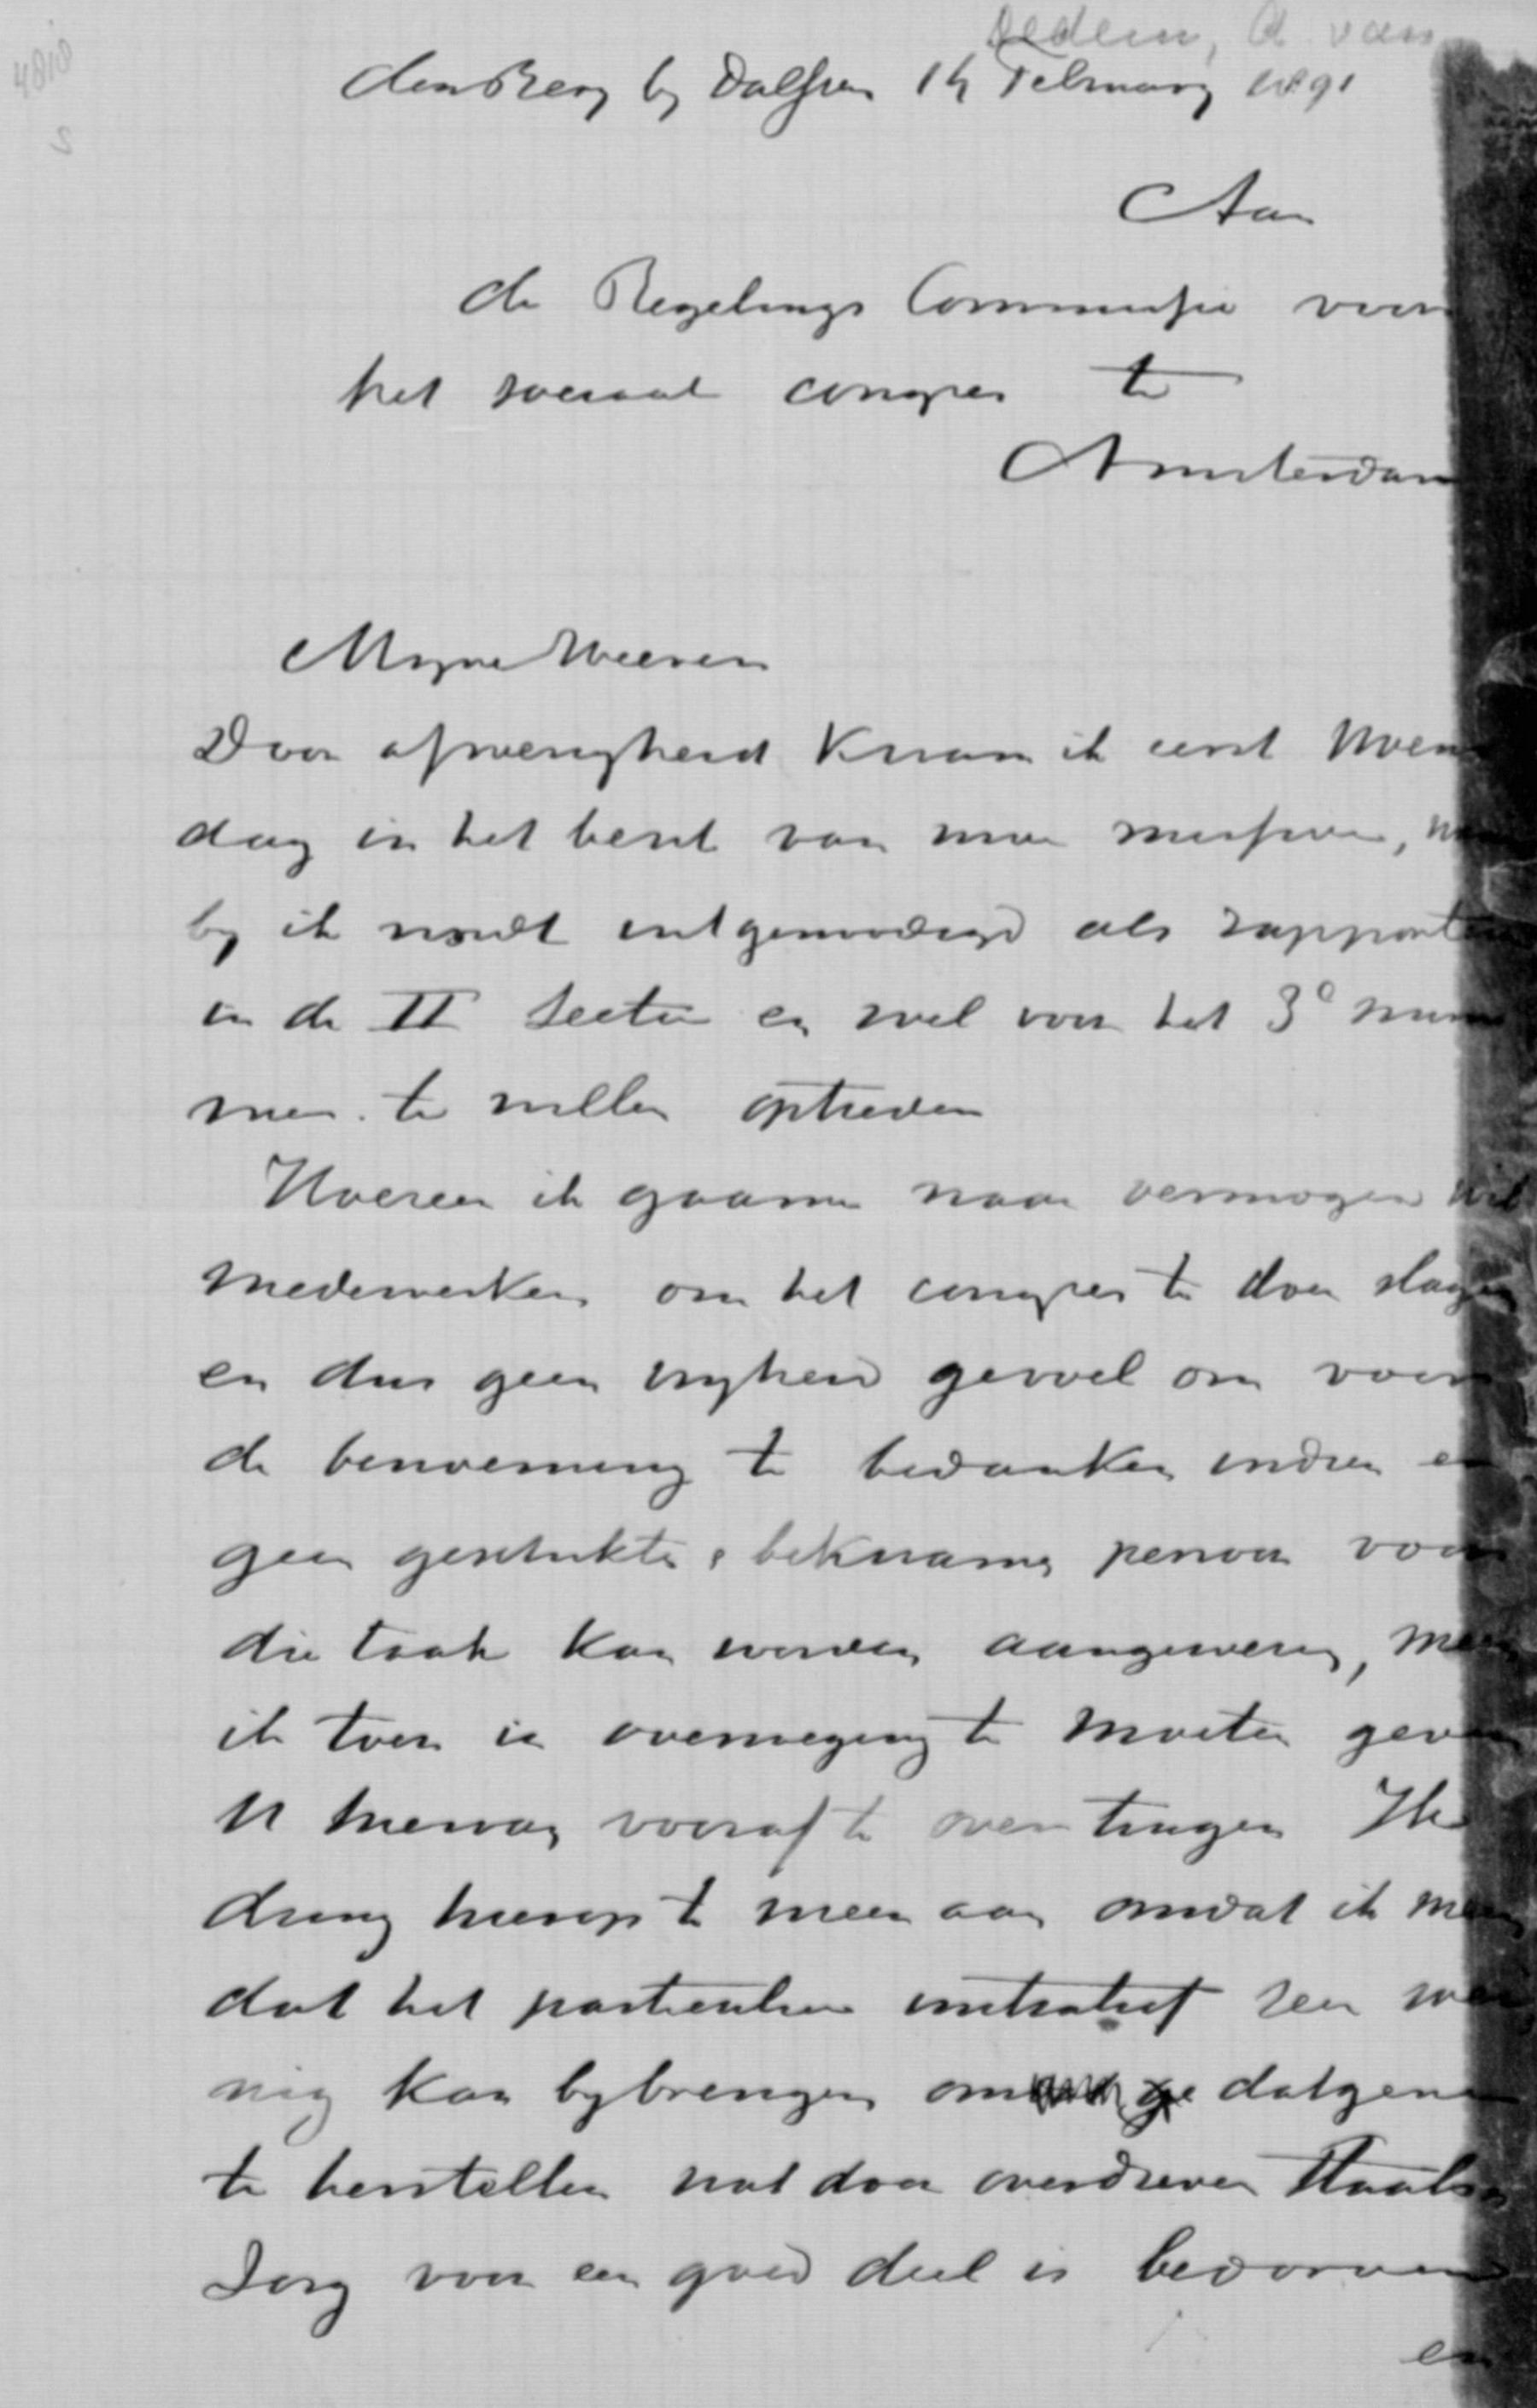 Dedem, A. van
4810
2
den Berg by Dalfsen 14 February 1891
Aan
de Regelings Commissie voor
het sociaal congres te
Amsterdam
Myne Heeren
Door afwezigheid kwam ik eerst Woens
dag in het bezit van uwe missive, waar
by ik wordt uitgenoodigd als rapporteur
in de II Sectie en wel voor het 3e num
mer te willen optreden
Hoezeer ik gaarne naar vermogen wil
medewerken om het congres te doen slagen
en dus geen vryheid gevoel om voor
de benoeming te bedanken indien er
geen geschikter, bekwamer persoon voor
die taak kan worden aangewezen, meen
ik toch in overweging te moeten geven
U hiervan vooraf te overtuigen Ik
dring hierop te meer aan omdat ik meen
dat het particulier initiatief zeer wei
nig kan bybrengen om datgene
te herstellen wat door overdreven Staats
zorg voor een goed deel is bedorven
en